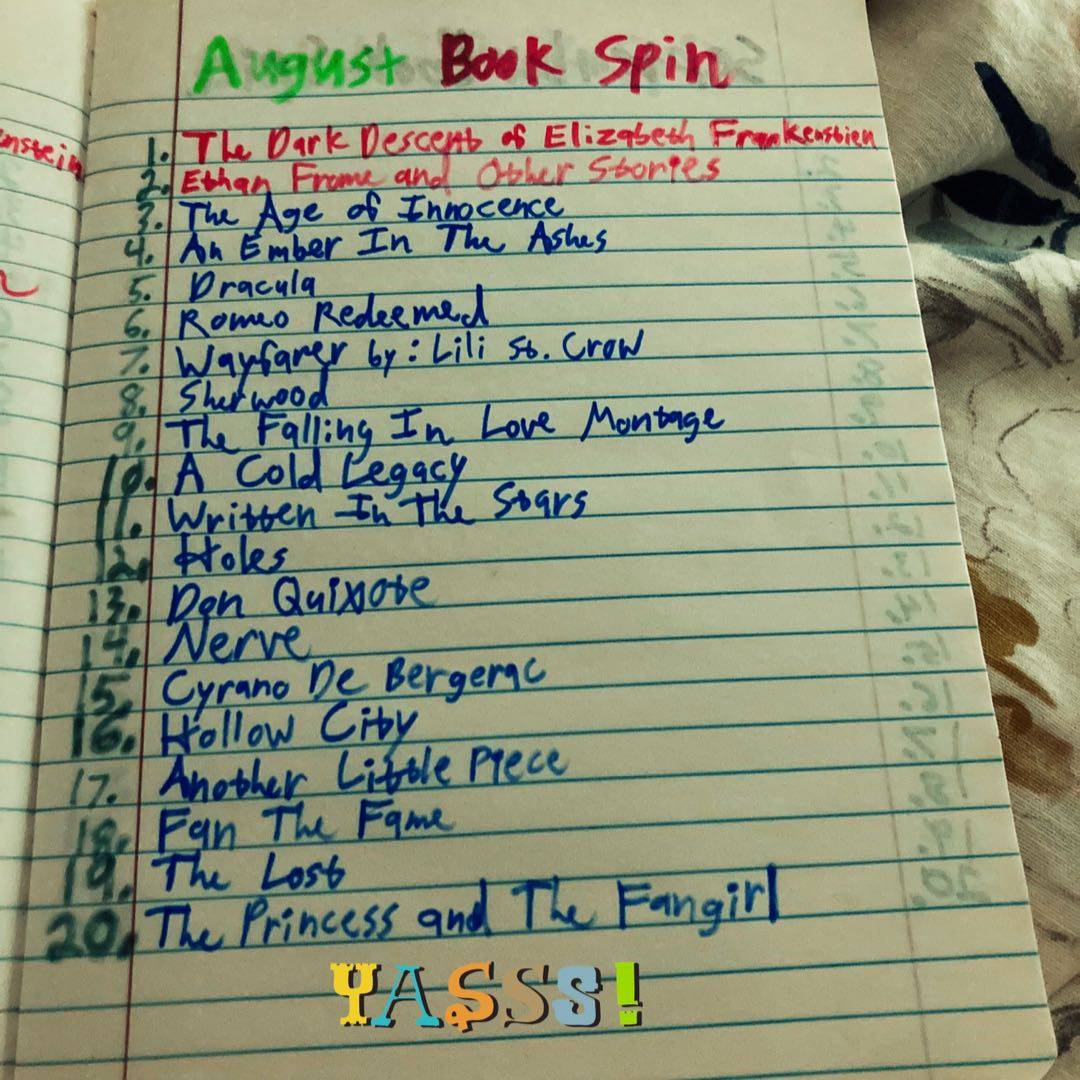 August Book Spin
enstein
1. The Dark Descent of Elizabeth Frankenstien
2. Ethan Frome and Other Stories
3. The Age of Innocence
4. An Ember In The Ashes
5. Dracula
6. Romeo Redeemed
7. Wayfarer by: Lili St. Crow
8. Sherwood
9. The Falling In Love Montage
10. A Cold Legacy
11. Written In The Stars
12. Holes
13. Don Quixote
14. Nerve
15. Cyrano De Bergerac
16. Hollow City
17. Another Little Piece
18. Fan The Fame
19. The Lost
20. The Princess and The Fangirl
YASSS!